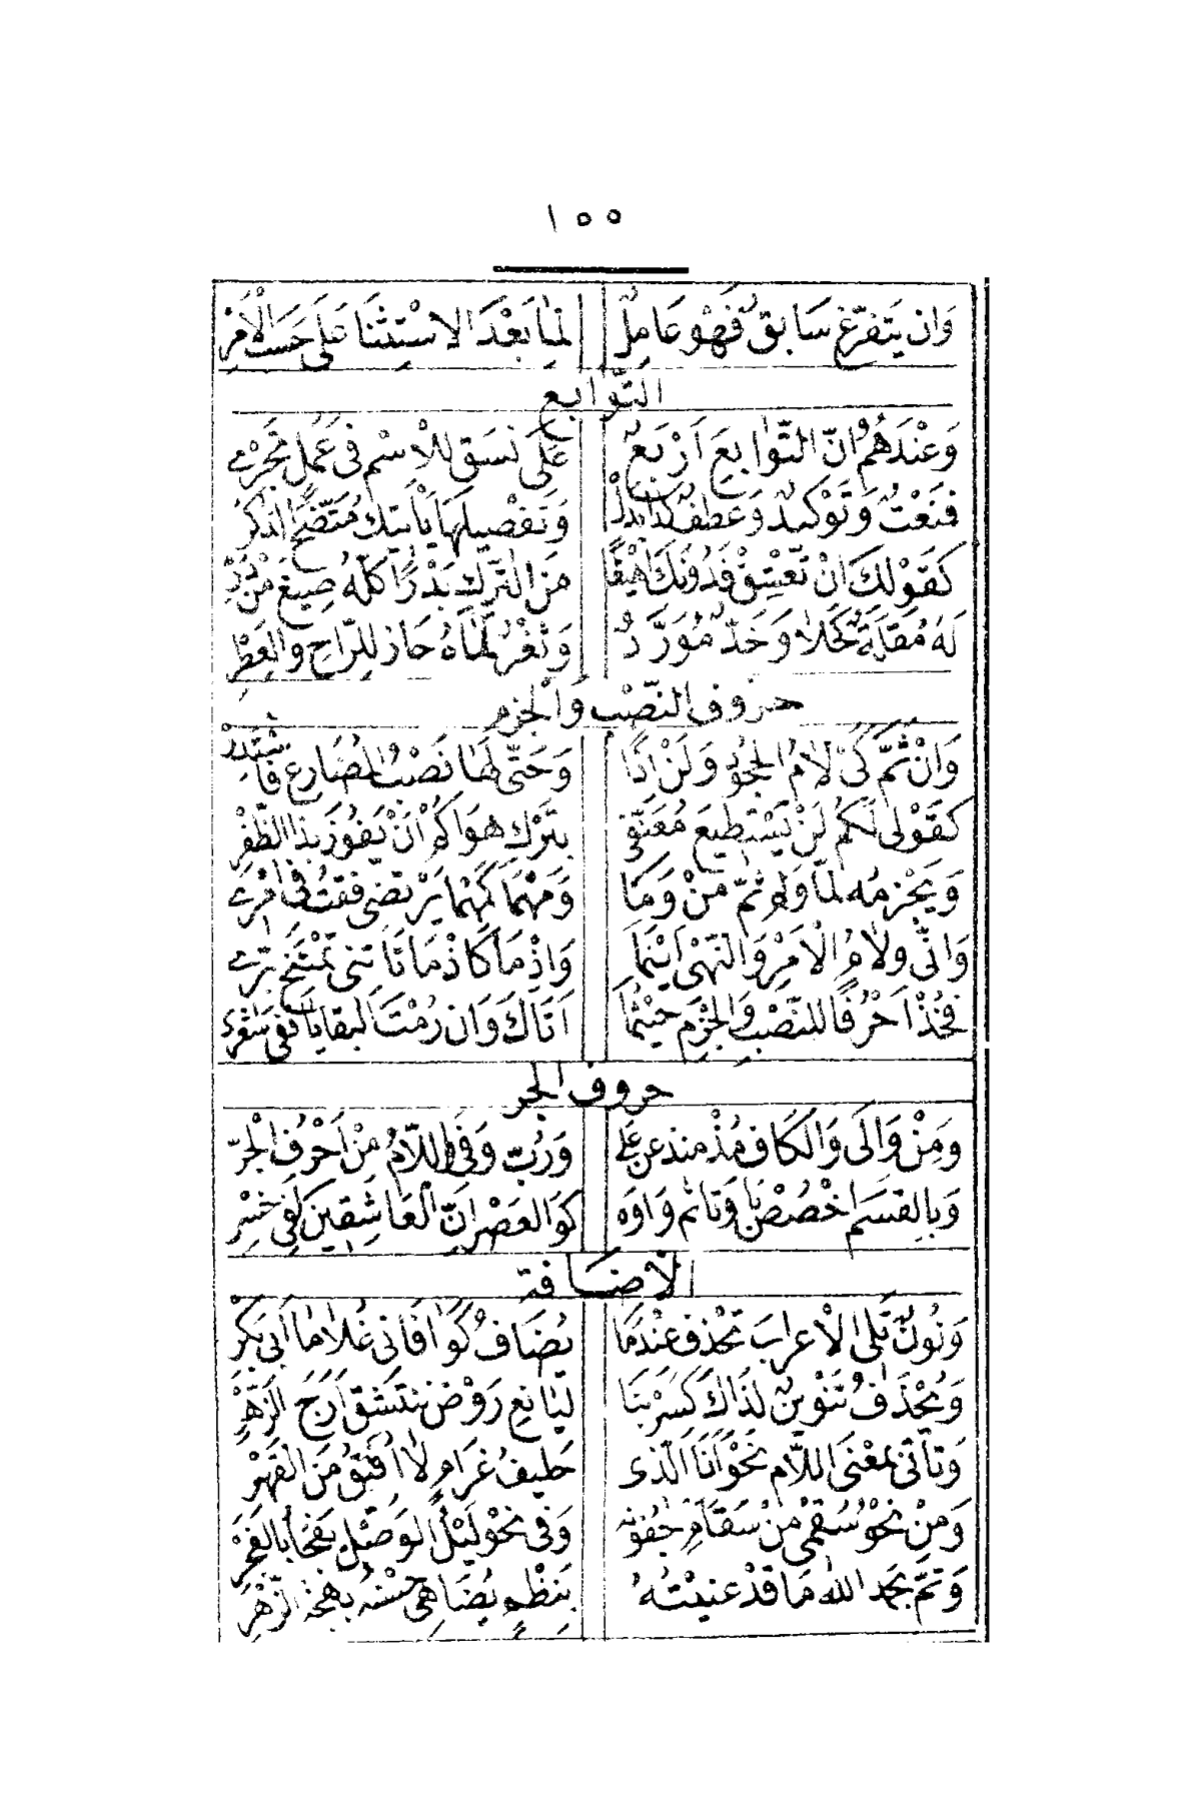 ١٥٥
وَإن يَتَفَرَّغ سَابِقٌ فَهْوَ عَامِلٌ لِمَا بَعْدَ الاسْتِثْنَا عَلَى حَسَبِ الْأَمْرِ
التَّوَابِع
وَعِنْدَهُمُ انَّ التَّوَابِعَ أرْبَعٌ عَلَى نَسَقٍ لِلْاسْمِ فى عَمَلٍ تَجْرِى
فَنَعْتٌ وَتَوْكِيدٌ وَعَطفٌ كَذَا بَدَلْ وَتَفْصِيلُهَا يَأْتِيكَ مُتَّضِحَ الذِّكْرِ
كَقَوْلِكَ انْ تَعْشِقْ فَدُونَكَ أَهْيَفًا مِنَ التُّرْكِ بَدْرًا كُلُّهُ صِيغَ مِنْ دُرِّ
لَهُ مُقْلَةٌ كَحْلَا وَخَدٌّ مُوَرَّدٌ وَثَغْرٌ لَمَاهُ حَازَ لِلرَّاحِ وَالْعِطْرِ
حروف النَّصْبِ وَالْجَزم
وَانْ ثُمَّ كَىْ لَامُ الْجُحُودِ وَلَنْ اذًا وَحَتَّى لَهَا نَصْبُ الْمُضَارِعِ فَاسْتَقْرِ
كَقَوْلِى لَكُمْ لَنْ يَسْتَطِيعَ مُعَنِّفِى بِتَرْكِ هَوَاكُمْ أنْ يَفُوزَ بِذَا الظَّفْرِ
وَيَجْزِمُهُ لَمَّا وَلَمْ ثُمَّ مَنْ وَمَا وَمَهْمَا كَمَهْمَا يَرْتَضِى فَقْتُ فى امْرِى
وَانَّى وَلَامُ الْأَمْرِ وَالنَّهْىِ ايْنَمَا وَاذْمَا كَاذْمَا تَأْتِنِى تَمْتَنِحْ بِرِّى
فَخُذْ احْرُفًا لِلنَّصْبِ وَالْجَزْمِ حَيْثُمَا اتَاكَ وَان رُمْتَ الْبَقَايَا فَفِى شِعْرِى
حروف الجر
وَمِنْ وَالَى وَالْكَافِ مُذْ منذ عن عَلَى وَرُبَّ وَفِى وَاللَّامُ مِنْ أَحْرُفِ الْجَرِّ
وَبِالْقَسَمِ اخْصُصْ بَا وَتَا ثم وَاوَهُ كَوَالْعَصْرِ انَّ الْعَاشِقِينَ لَفِى خُسْرِ
الْاضَافَة
وَنُونٌ تَلِى الْأعْرَابَ تَحْذف عِنْدَمَا يُضَافُ كَوَافَانِى غُلَامَا ابِى بَكْرِ
وَيُحْذَفُ تَنْوِينٌ لَذَاكَ كَسِرْ بِنَا لِيَانِعِ رَوْضٍ نَنْتَشِقْ ارَجَ الزَّهْرِ
وَتَأْتِى بِمَعْنَى اللَّامِ نَحْوُ انَا الَّذِى حَلِيفُ غَرَامٍ لَا افِيقُ مِنَ الْقَهْرِ
وَمِنْ نَحْوُ سُقْمِى مِنْ سَقَامِ جُفُونِهِ وَفِى نَحْوُ لَيْلُ الْوَصْلِ يَفْجَأُ بِالْفَجْرِ
وَتَمَّ بِحَمْدِ اللهِ مَا قَدْ عَنِيْتُهُ بِنَظْمٍ يُضَاهِى حُسْنُهُ بَهْجَةَ الزَّهْرِ